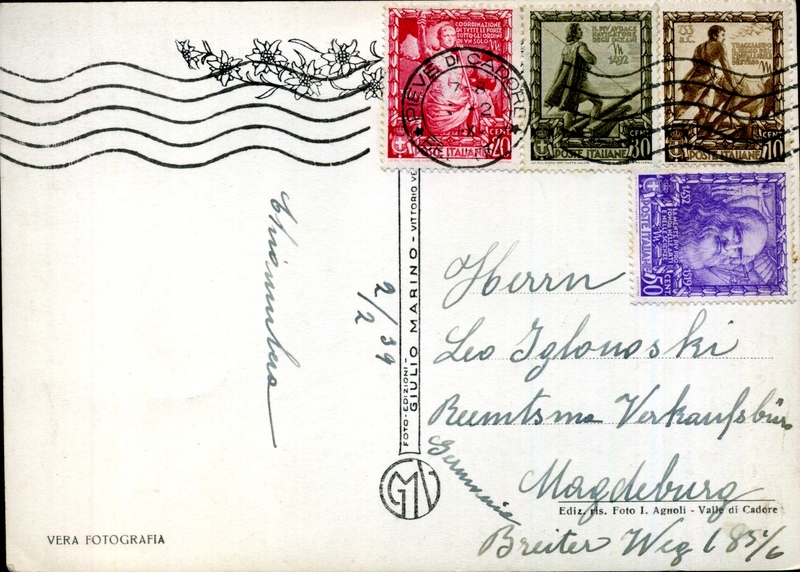 COORDINAZIONE
DI TUTTE LE FORZE
SOTTO GLI ORDINI
DI UN SOLO
CENT 20
POSTE ITALIANE
PIEVE DI CADORE
1492
CENT 30
POSTE ITALIANE
CENT 10
POSTE ITALIANE
1452
1519
POSTE ITALIANE
CENT 50
2/2 39
FOTO-EDIZIONI-
GIULIO MARINO - VITTORIO VE
GMV
Herrn
Leo Iglonoski
Reemtsma Verkaufsbüro
Germania
Magdeburg
Ediz. ris. Foto I. Agnoli - Valle di Cadore
Breiter Weg
VERA FOTOGRAFIA